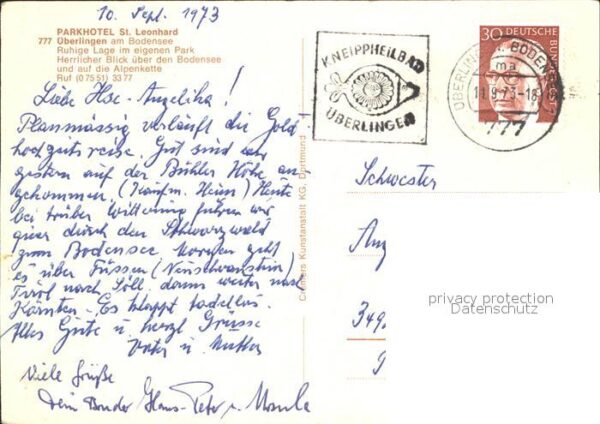 10. Sept. 1973
PARKHOTEL St. Leonhard
777 Überlingen am Bodensee
Ruhige Lage im eigenen Park
Herrlicher Blick über den Bodensee
und auf die Alpenkette
Ruf (0 75 51) 33 77
Liebe Angelika!
Planmässig verläuft die Gold-
hochzeitsreise. Gut sind wir
gestern auf der Bühler Höhe an-
gekommen. Heute
bei trüber Witterung fuhren wir
quer durch den Schwarzwald
zum Bodensee. Morgen geht
es über Füssen (Neuschwanstein)
Tirol nach Söll. dann weiter nach
Kärnten. Es klappt tadellos.
Alles Gute u. herzl. Grüsse
Vater u. Mutter
Viele Grüße
Dein Bruder Hans-Peter u. Ursula
Cramers Kunstanstalt KG, Dortmund
KNEIPPHEILBAD
ÜBERLINGEN
ÜBERLINGEN BODENSEE
ma
11.9.73-18
777
30
DEUTSCHE BUNDESPOST
Schwester
Ang
349
privacy protection
Datenschutz